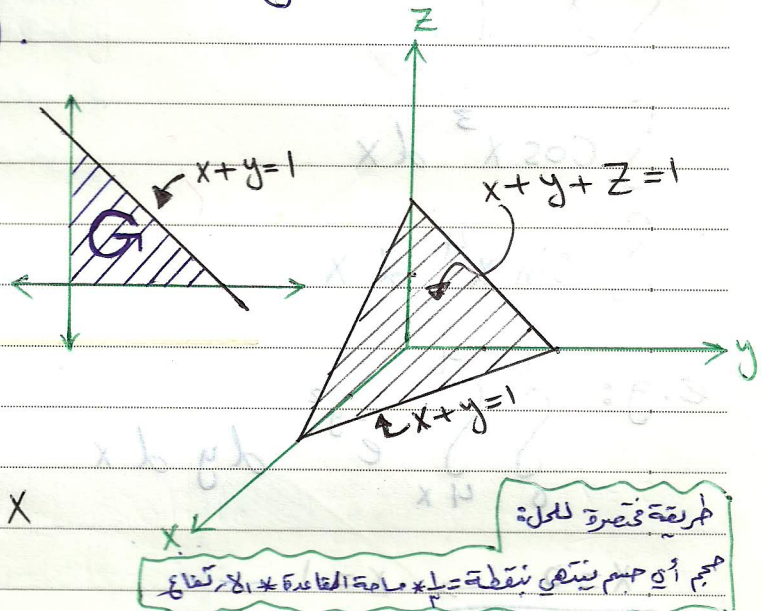 z
x+y=1
x+y+z=1
G
y
x+y=1
x
X
طريقة مختصرة للحل:
حجم أي جسم ينتهي بنقطة = ١/٣ * مساحة القاعدة * الارتفاع